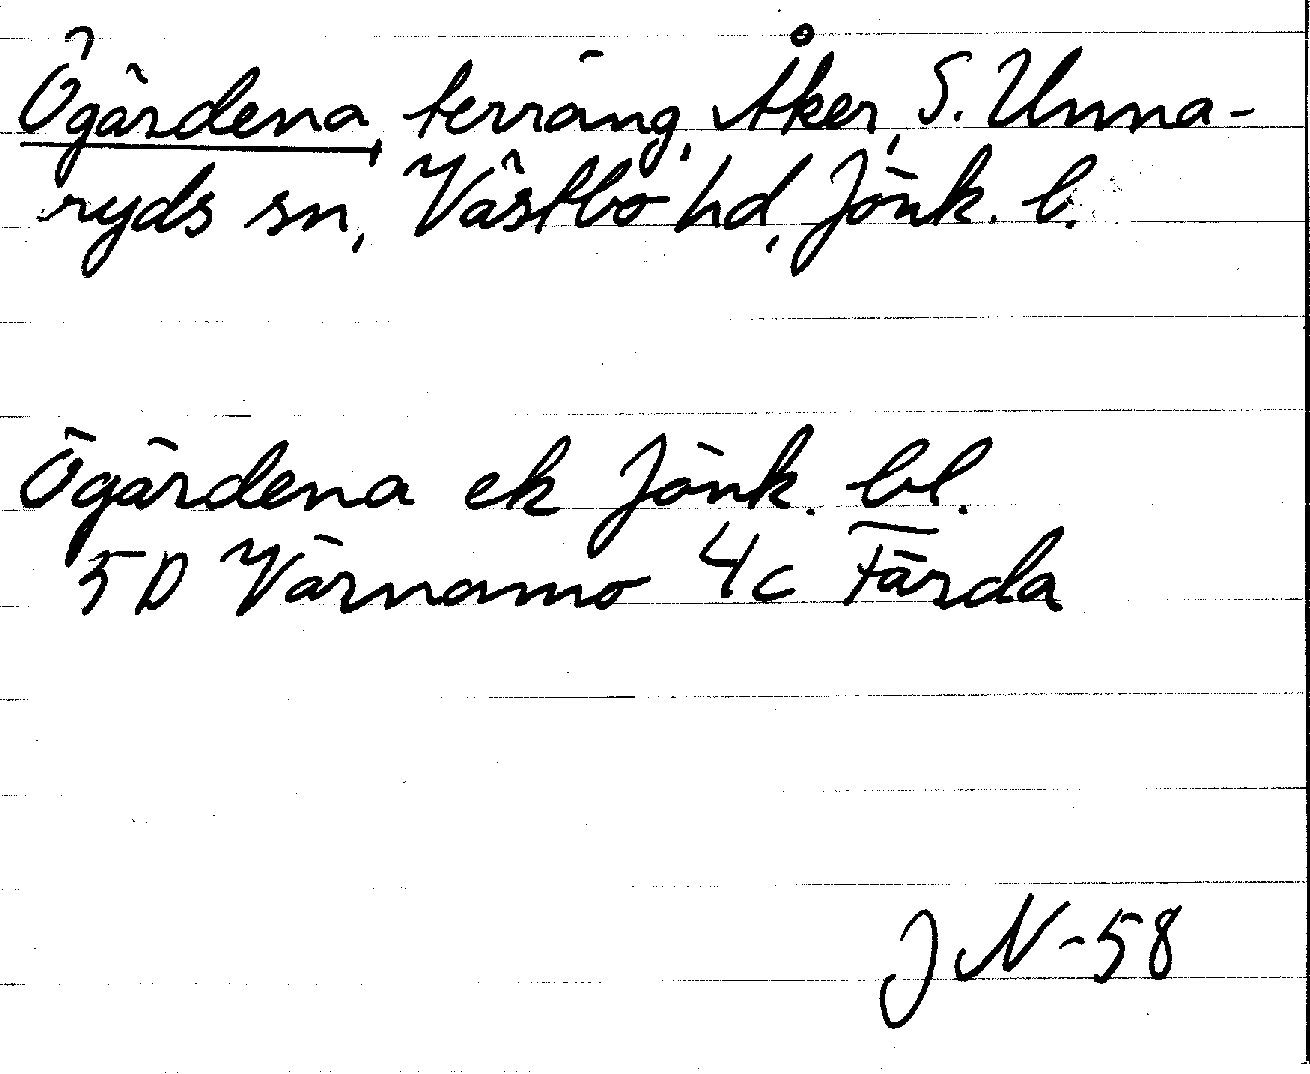 Ögärdena, terräng, Åker, S. Unna-
ryds sn, Västbo hd, Jönk. l.
Ögärdena ek Jönk. bl.
5D Värnamo 4c Färda
JN-58